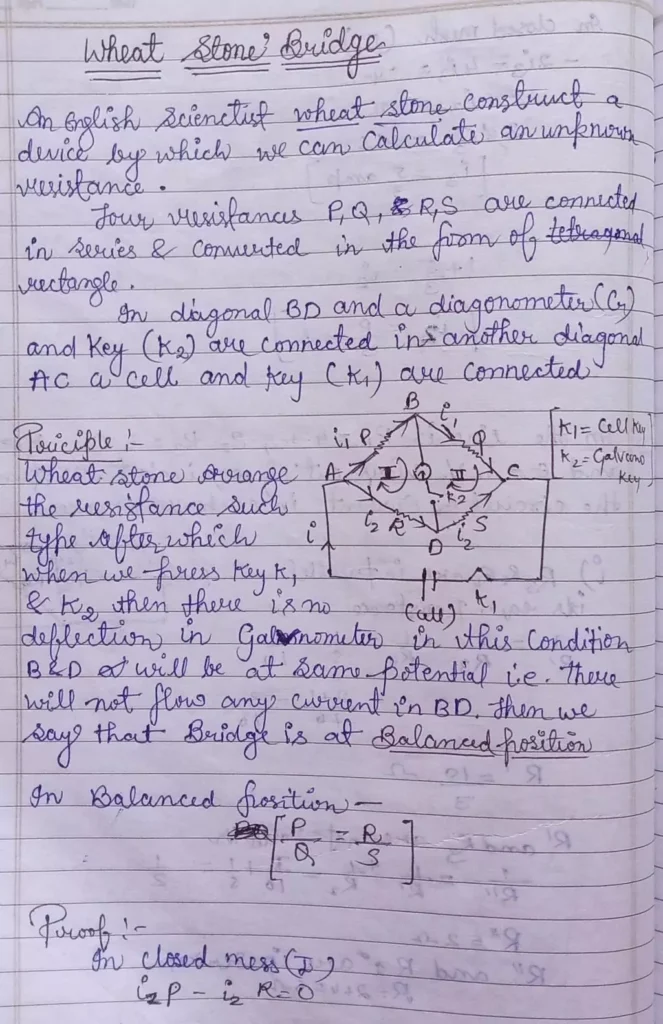 Wheat Stone Bridge
An English Scienctist wheat stone construct a
device by which we can Calculate an unknown
resistance.
Four resistances P, Q, R, S are connected
in series & converted in the from of tetragonal
rectangle.
In diagonal BD and a diagonometer (G)
and Key (K2) are connected in another diagonal
AC a cell and key (K1) are connected
Priciple :-
Wheat stone arrange
the resistance such
type after which
when we press Key K1
& K2 then there is no
deflection in Galvnometer in this Condition
B & D will be at same potential i.e. there
will not flow any current in BD. then we
say that Bridge is at Balanced position
B
i1 P
i1
Q
A
I
G
II
C
K2
i2
R
D
i2
S
i
(cell)
K1
K1 = Cell Key
K2 = Galvano
Key
In Balanced position —
[P/Q = R/S]
Proof :-
In closed mess (I)
i2P - i2 R = 0